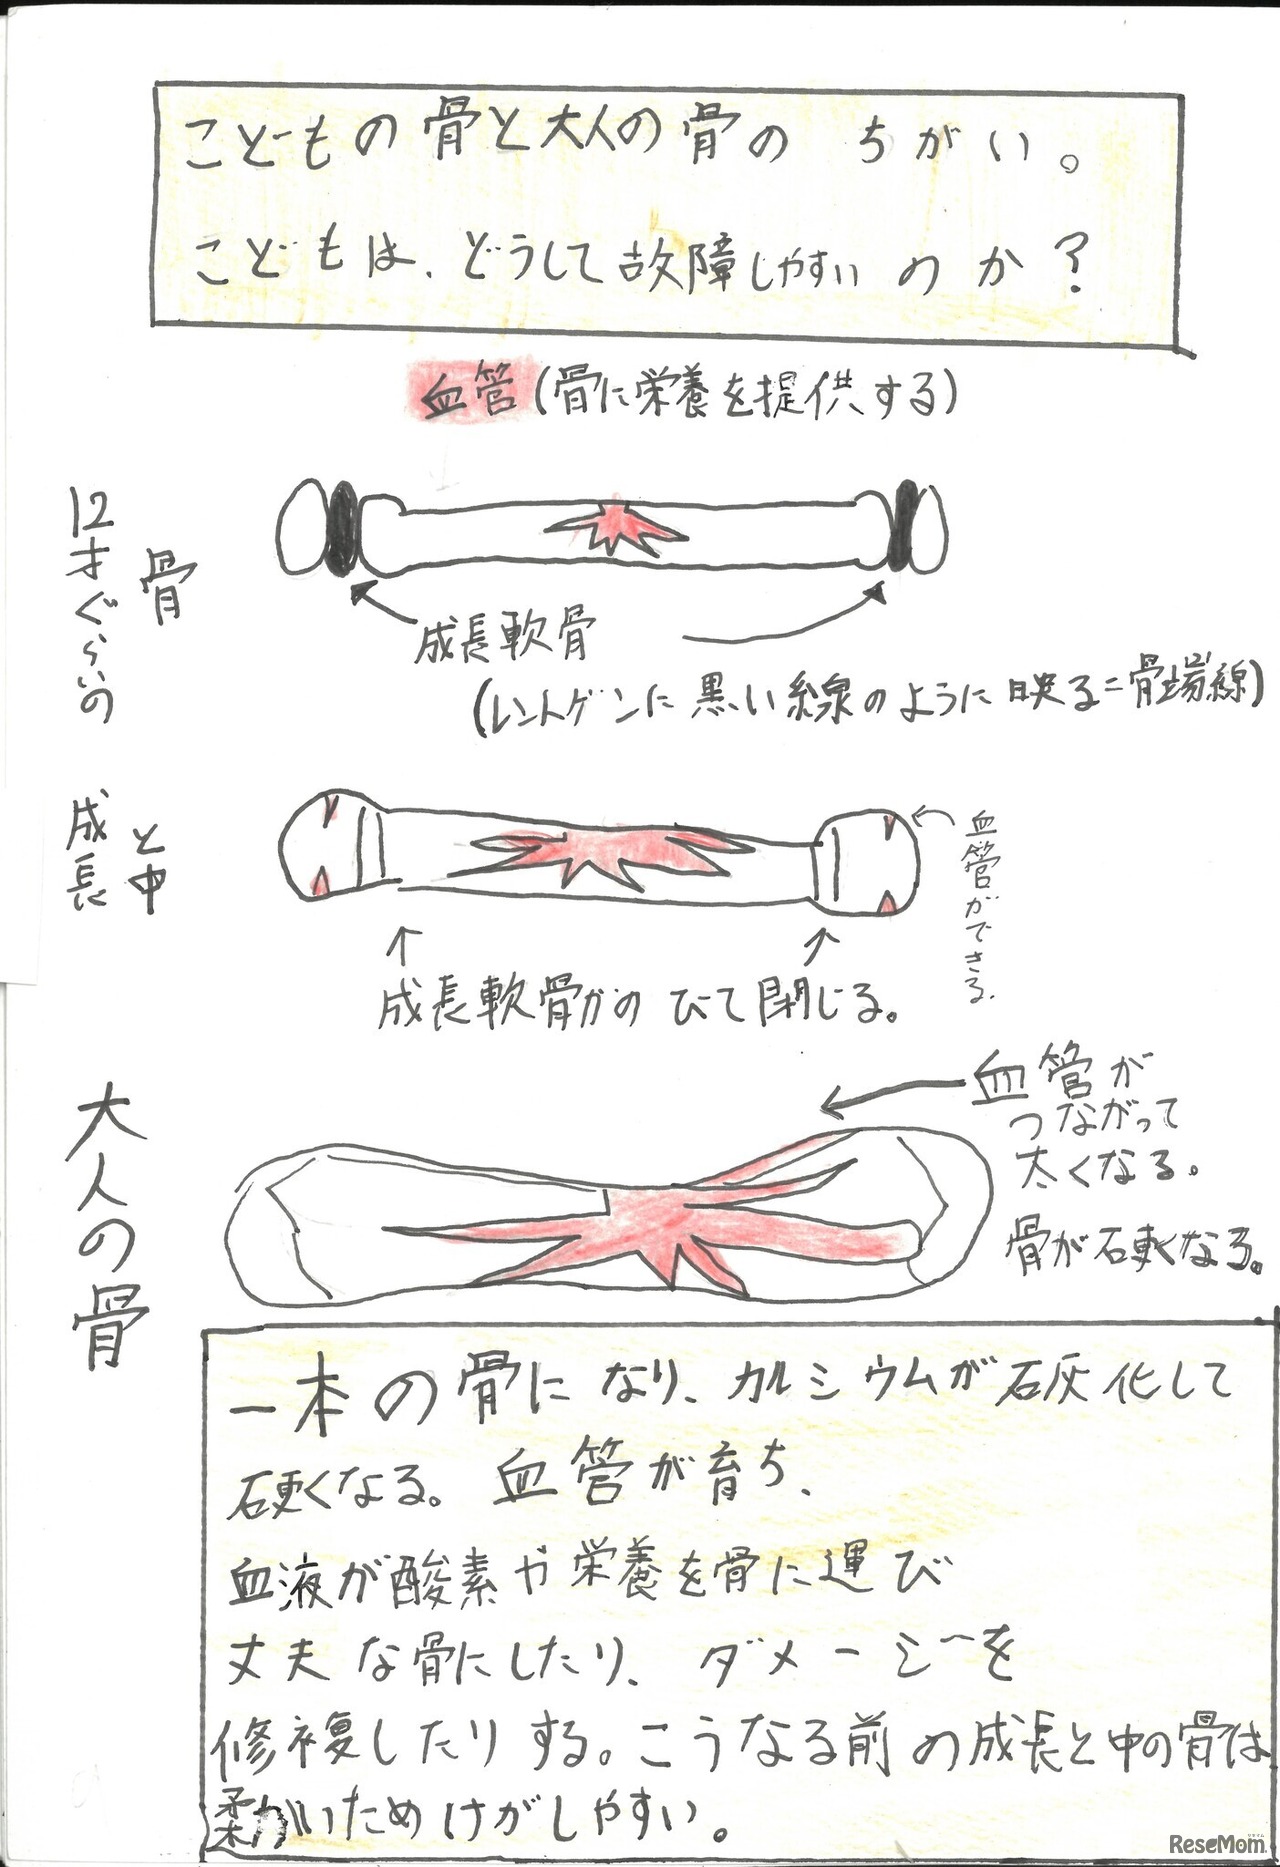 こどもの骨と大人の骨の ちがい。
こどもは、どうして故障しやすいのか?
血管(骨に栄養を提供する)
12才ぐらいの
骨
成長軟骨
(レントゲンに黒い線のように映る=骨端線)
成長
と中
血管ができる.
成長軟骨がのびて閉じる。
大人の骨
血管が
つながって
太くなる。
骨が硬くなる。
一本の骨になり、カルシウムが石灰化して
硬くなる。血管が育ち、
血液が酸素や栄養を骨に運び
丈夫な骨にしたり、ダメージを
修複したりする。こうなる前の成長と中の骨は
柔かいためけがしやすい。
ReseMom
リセマム